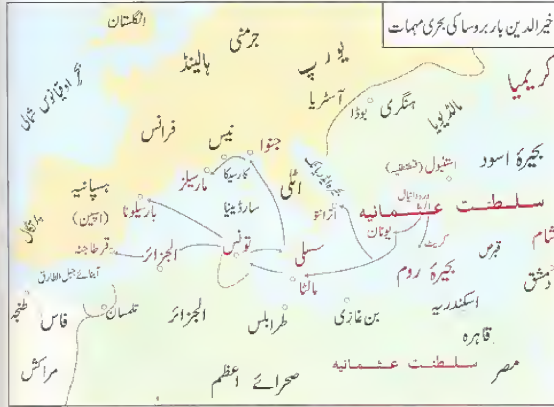 خیرالدین باربروسا کی بحری مہمات
انگلستان
جرمنی
ہالینڈ
یورپ
کریمیا
بحر اوقیانوس شمالی
آسٹریا
ہنگری
بوڈا
مالڈیویا
فرانس
نیس
جنوا
بحیرۂ اسود
مارسیلز
کارسیکا
اٹلی
بحیرۂ ایڈریاٹک
استنبول (قسطنطنیہ)
ہسپانیہ
(اسپین)
بارسیلونا
سارڈینیا
اٹرانٹو
درۂ دانیال
سلطنت عثمانیہ
پرتگال
قرطاجنہ
الجزائر
تونس
سسلی
یونان
کریٹ
قبرص
شام
آبنائے جبل الطارق
مالٹا
بحیرۂ روم
دمشق
طنجہ
فاس
تلمسان
الجزائر
طرابلس
بن غازی
اسکندریہ
قاہرہ
مراکش
صحرائے اعظم
سلطنت عثمانیہ
مصر